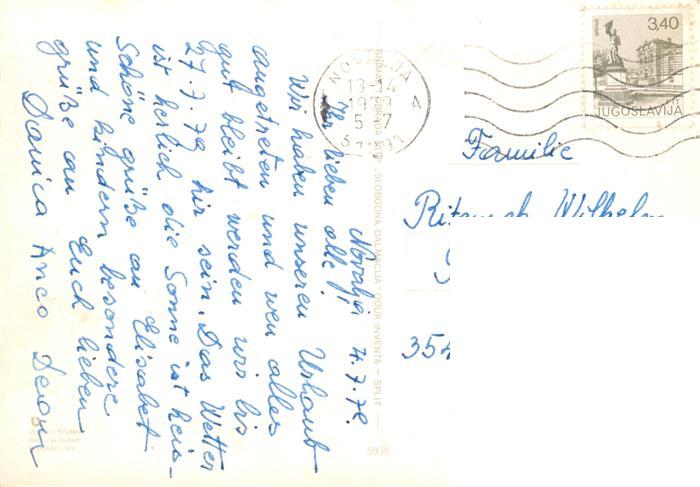 Novalja 4.7.79.
Ihr lieben alle!
Wir haben unseren Urlaub
angetreten und wen alles
gut bleibt werden wir bis
27.7.79 hir sein. Das Wetter
ist herlich die Sonne ist heis-
Schöne grüße an Elisabet
und kindern besondere
grüße an Euch lieben
Danica Anco Dejan
3,40
JUGOSLAVIJA
13-14
1979
5 7
A
Familie
Wilhelm
354
"SLOBODNA DALMACIJA" OOUR INVENTA - SPLIT
5938